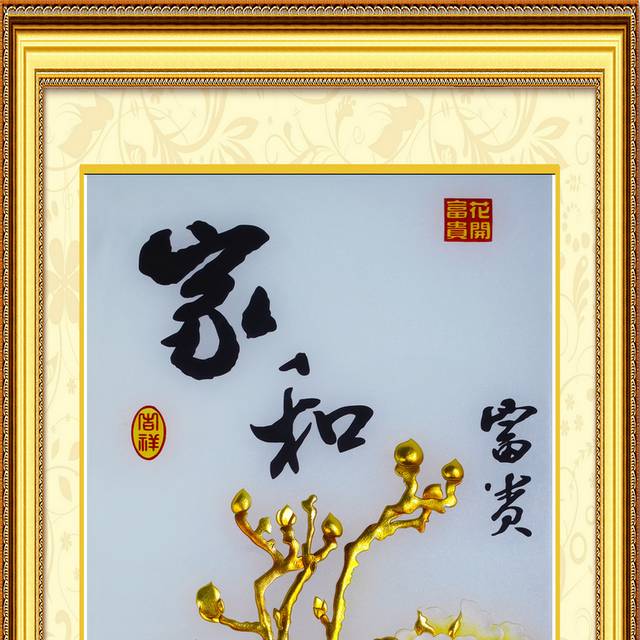 家和
富贵
花開富貴
吉祥